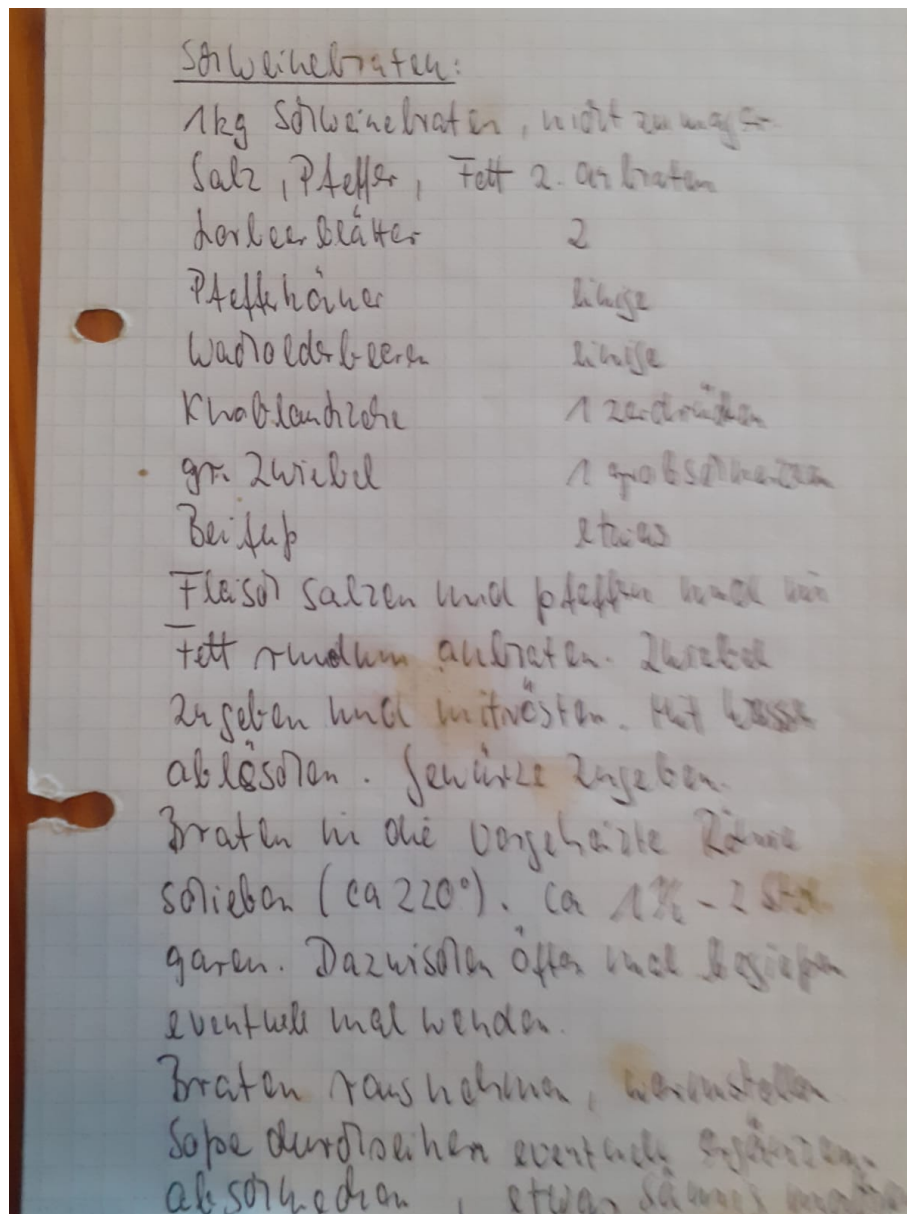 Schweinebraten:
1kg Schweinebraten, nicht zu mager
Salz, Pfeffer, Fett z. anbraten
Lorbeerblätter 2
Pfefferkörner einige
Wacholderbeeren einige
Knoblauchzehe 1 zerdrücken
gr. Zwiebel 1 grob
Beifuß etwas
Fleisch salzen und pfeffern und in
Fett rundum anbraten. Zwiebel
zugeben und mitrösten. Mit Wasser
ablöschen. Gewürze zugeben.
Braten in die vorgeheizte Röhre
schieben (ca 220°). Ca 1½ - 2 Std.
garen. Dazwischen öfter mal begießen
eventuell mal wenden.
Braten rausnehmen, warmstellen
Soße durchseihen eventuell ergänzen,
abschmecken, etwas